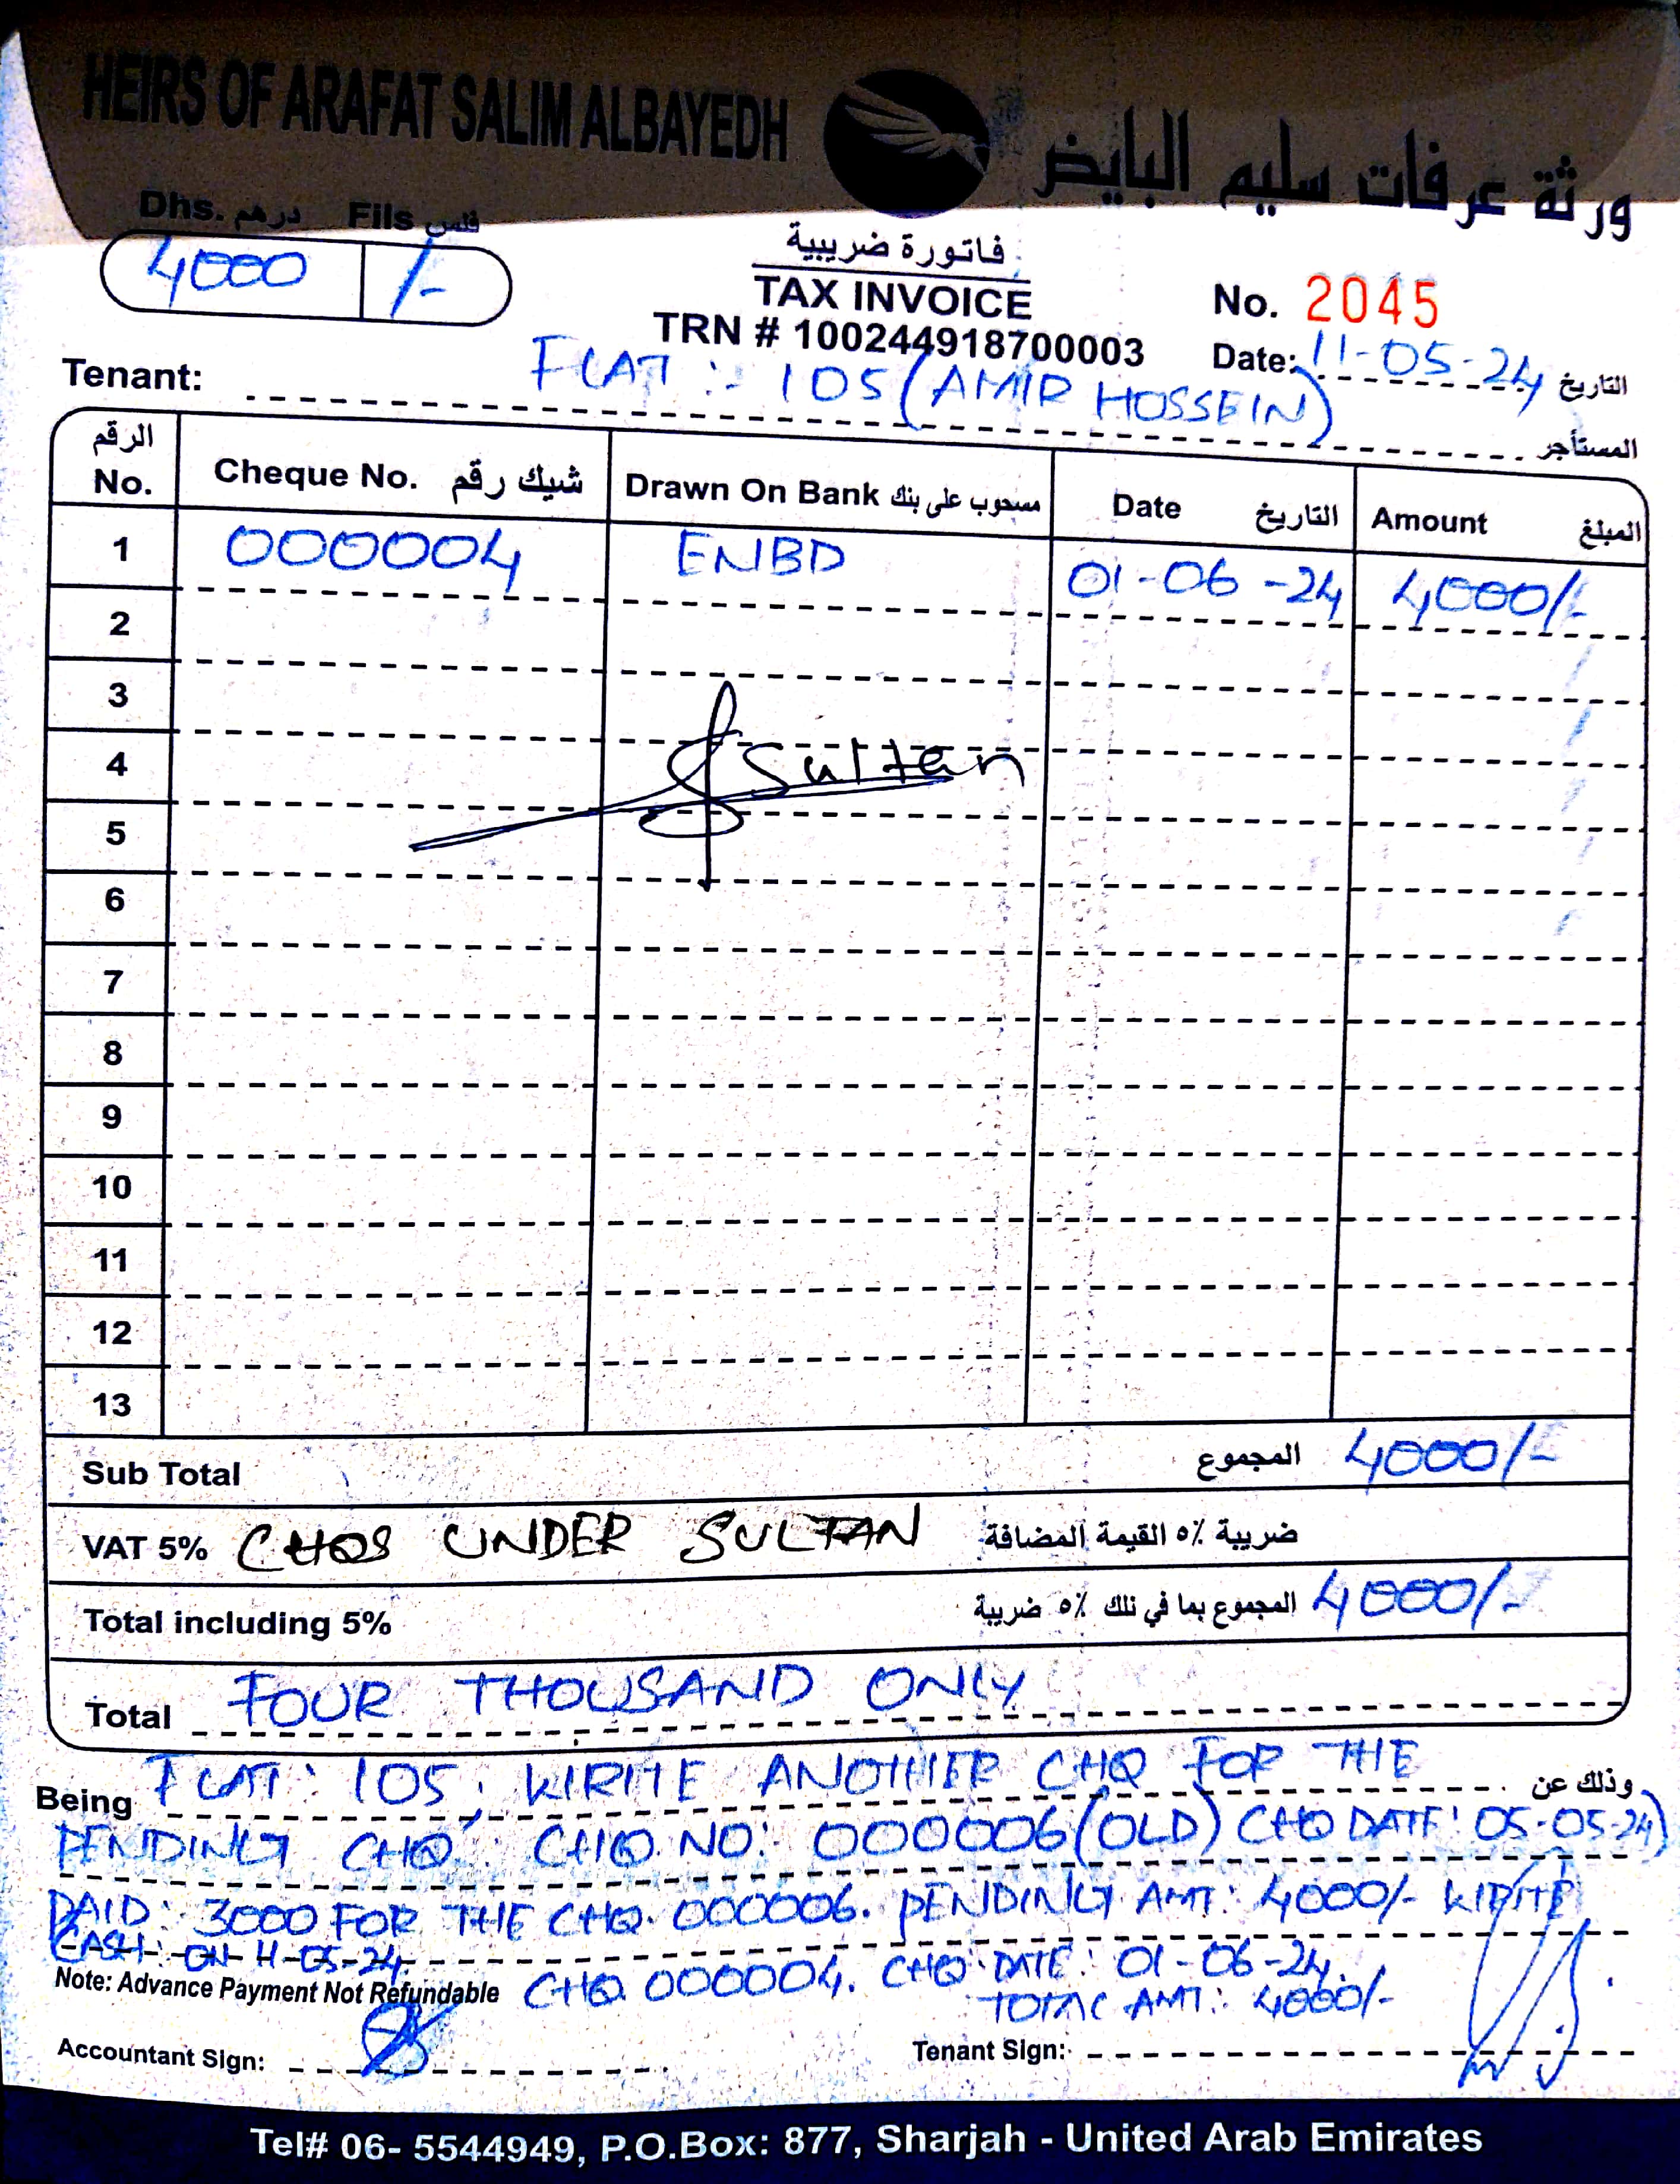 HEIRS OF ARAFAT SALIM ALBAYEDH ورثة عرفات سليم البايض
Dhs. درهم Fils فلس
4000 /-
فاتورة ضريبية
TAX INVOICE
TRN # 100244918700003
No. 2045
Date: 11-05-24 التاريخ
Tenant: FLAT:- 105 (AMIR HOSSEIN) المستأجر
الرقم No. Cheque No. شيك رقم Drawn On Bank مسحوب على بنك Date التاريخ Amount المبلغ
1 000004 ENBD 01-06-24 4000/-
2
3
4 Sultan
5
6
7
8
9
10
11
12
13
Sub Total المجموع 4000/-
VAT 5% CHQS UNDER SULTAN ضريبة ٥% القيمة المضافة
Total including 5% المجموع بما في ذلك ٥% ضريبة 4000/-
Total FOUR THOUSAND ONLY
Being FLAT: 105, WRITE ANOTHER CHQ FOR THE وذلك عن
PENDING CHQ: CHQ NO: 000006 (OLD) CHQ DATE: 05-05-24)
PAID: 3000 FOR THE CHQ. 000006. PENDING AMT: 4000/- WRITE
CASH: ON 11-05-24
Note: Advance Payment Not Refundable CHQ 000004. CHQ DATE: 01-06-24.
TOTAL AMT: 4000/-
Accountant Sign: Tenant Sign:
Tel# 06- 5544949, P.O.Box: 877, Sharjah - United Arab Emirates